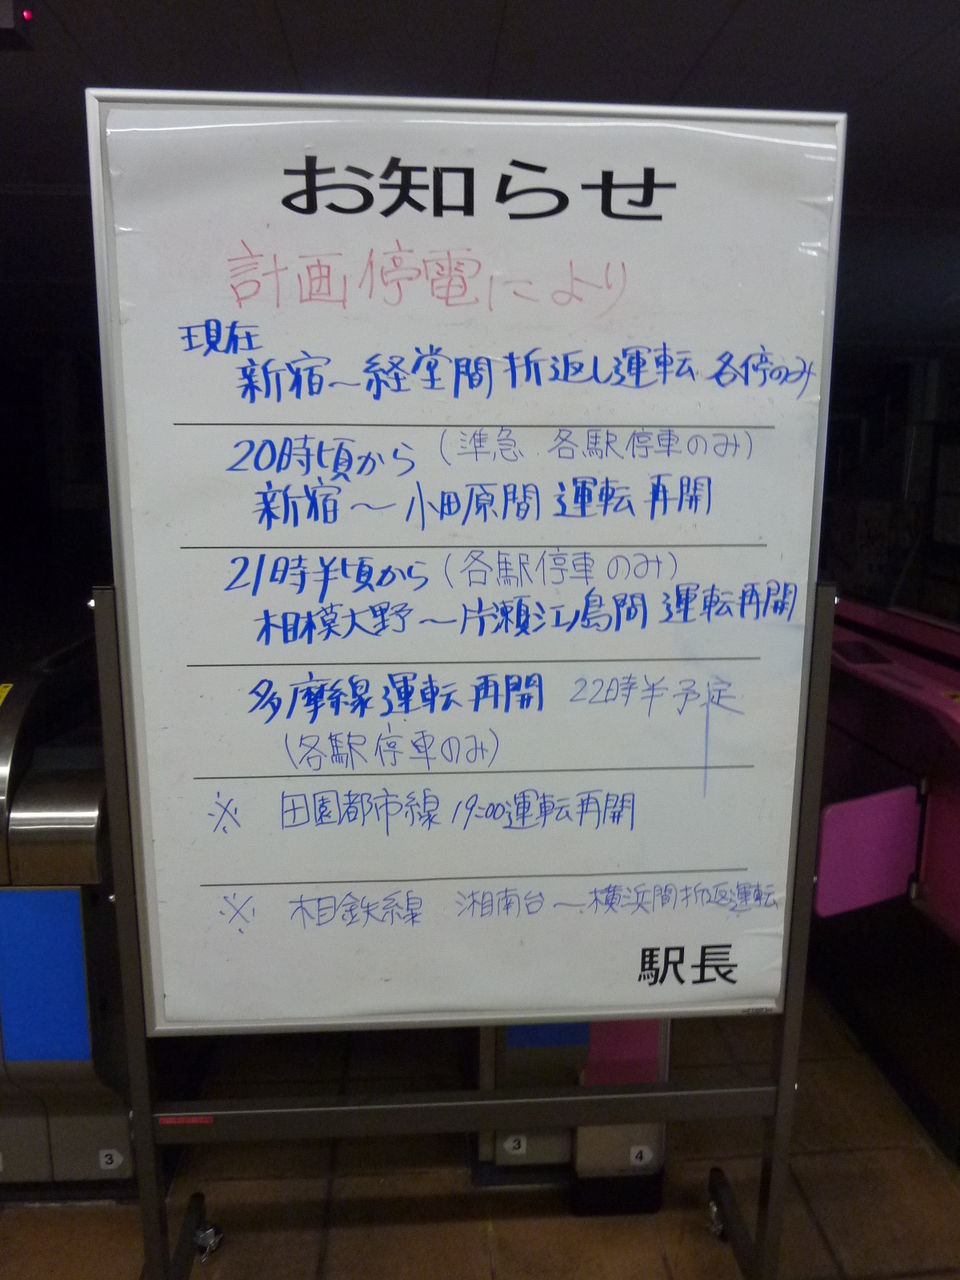 お知らせ
計画停電により
現在
新宿〜経堂間 折返し運転 各停のみ
20時頃から(準急 各駅停車のみ)
新宿〜小田原間 運転再開
21時半頃から(各駅停車のみ)
相模大野〜片瀬江ノ島間 運転再開
多摩線運転再開 22時半予定
(各駅停車のみ)
※ 田園都市線 19:00運転再開
※ 相鉄線 湘南台〜横浜間折返運転
駅長
3
3
4